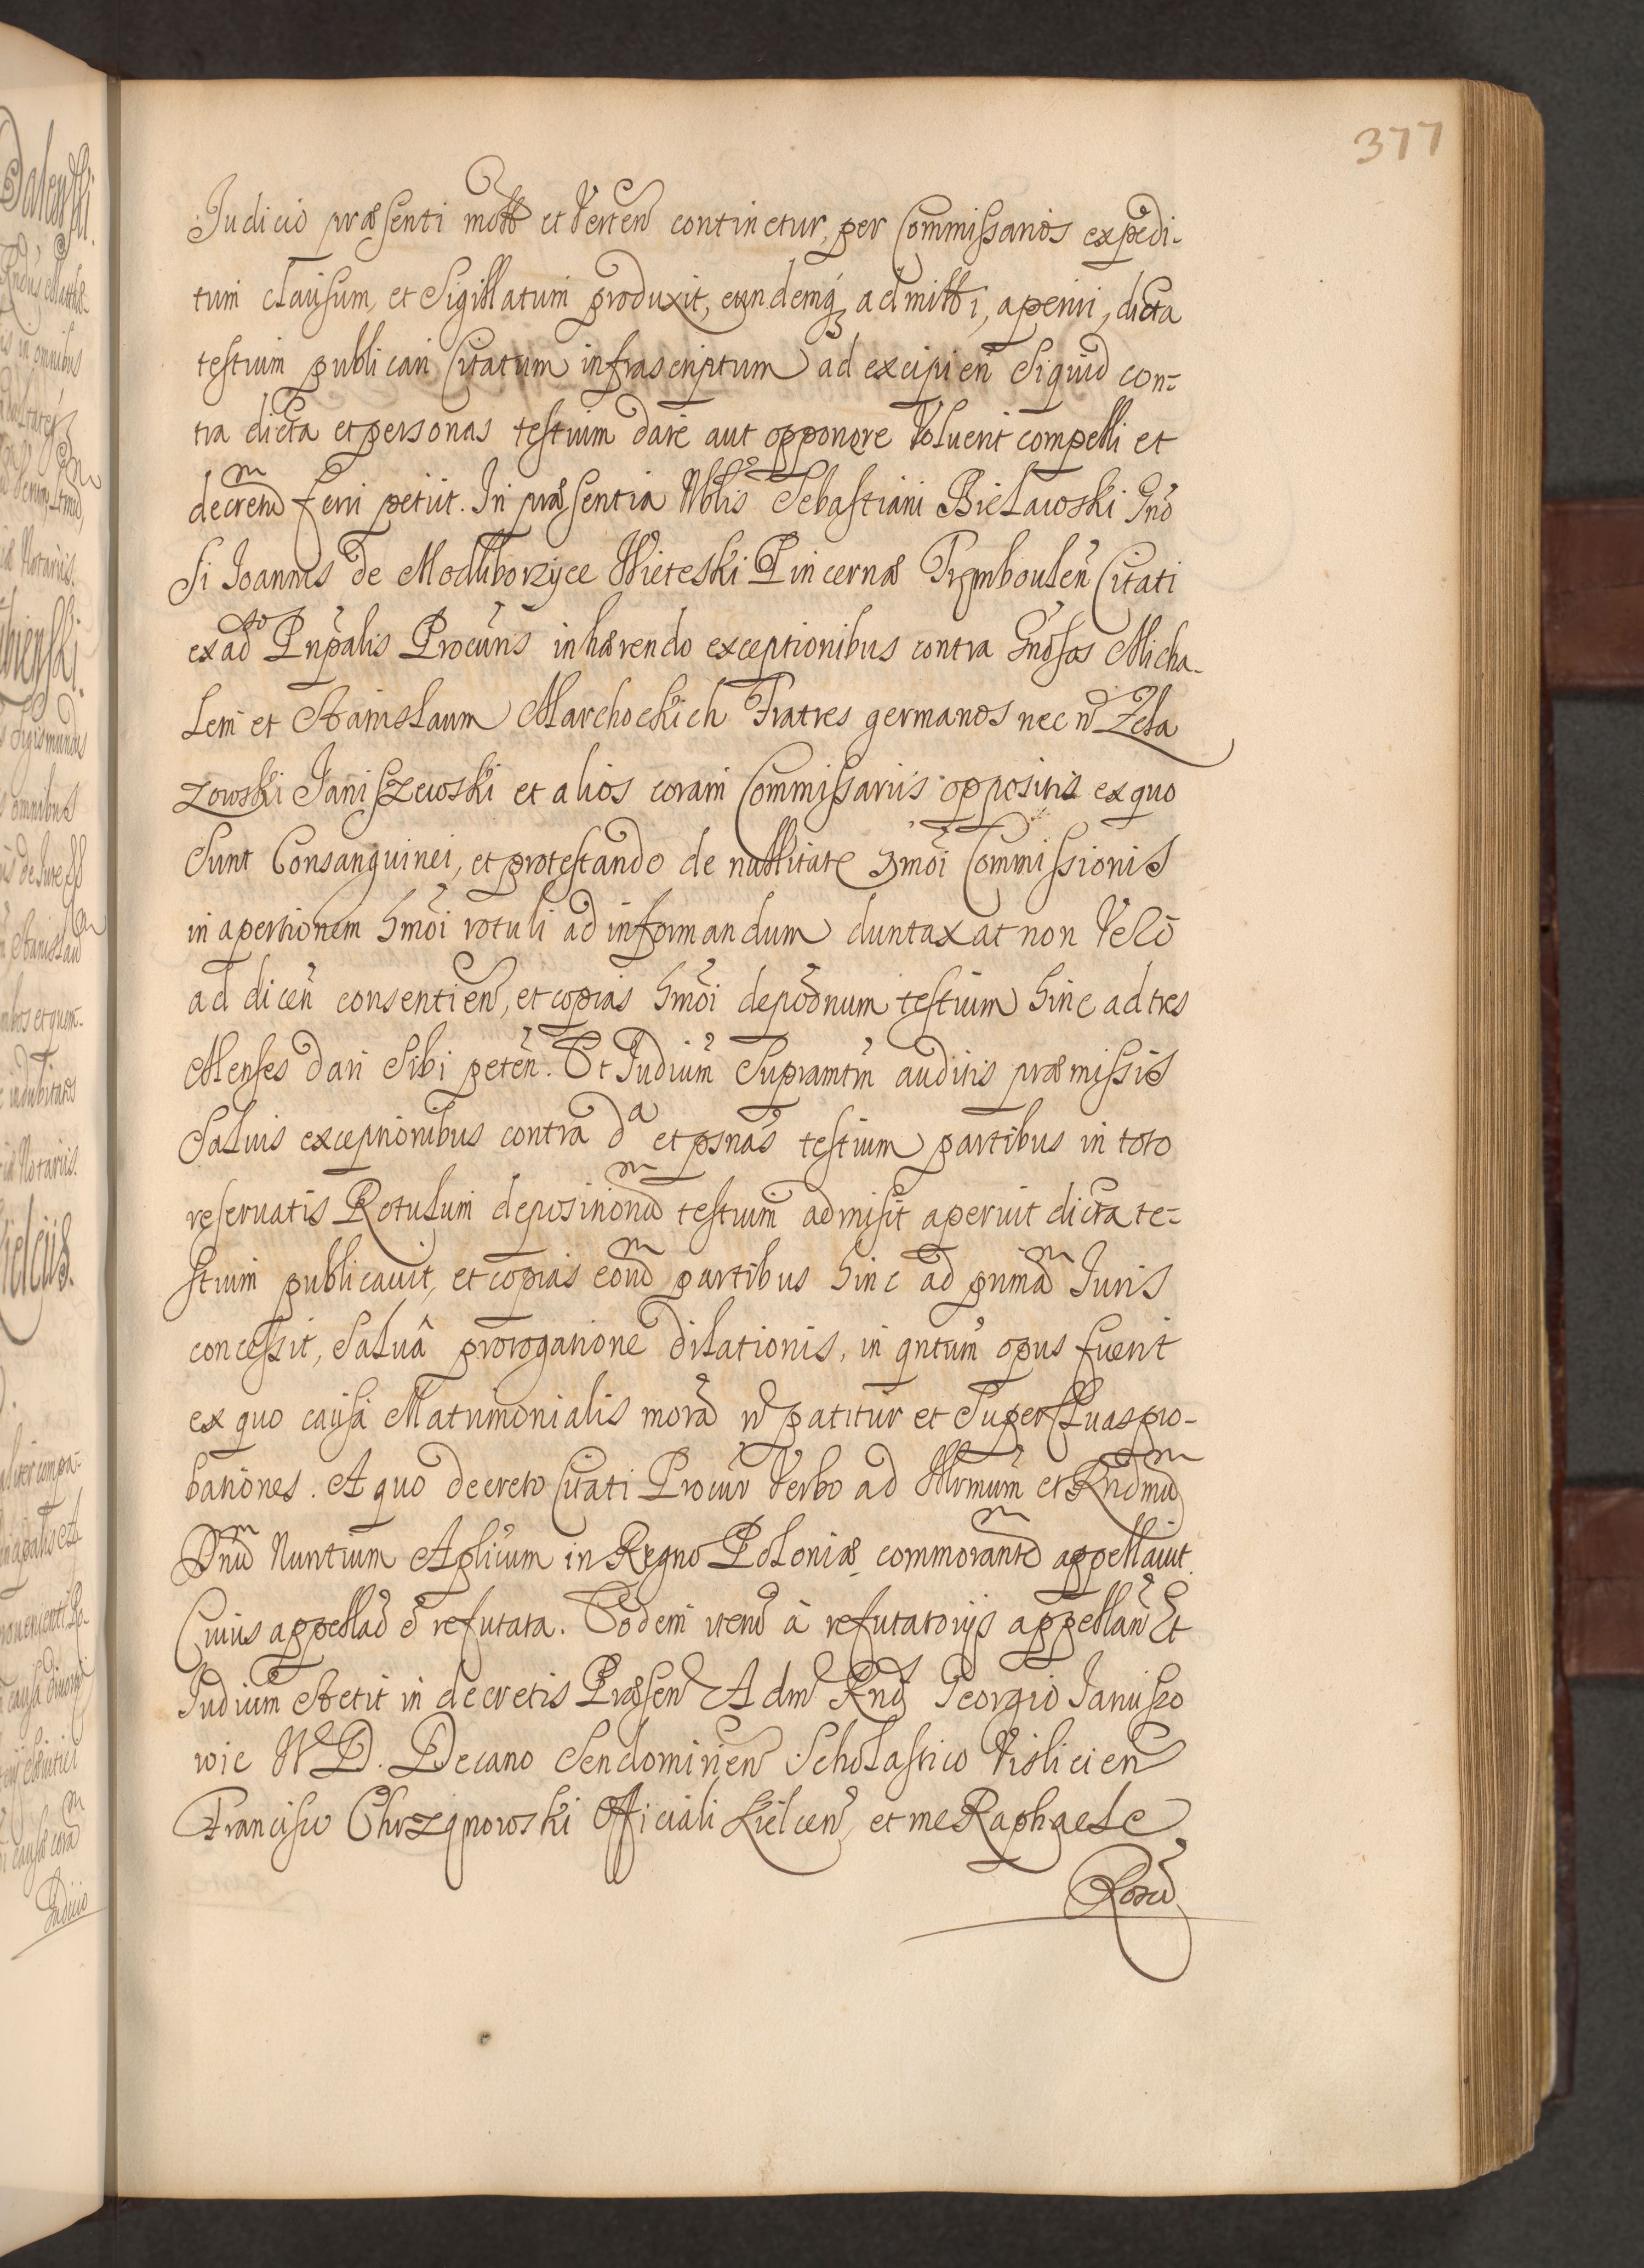 377
Judicio præsenti mott et Verten continetur, per Commissarios expedi-
tum clausum, et Sigillatum produxit, eundemq admitti, aperiri, dicta
testium publicari Citatum infrascriptum ad excipien Siquid con-
tra dicta et personas testium dare aut opponere Voluerit compelli et
decretum fieri petiit. In præsentia Nblis Sebastiani Bielawski Gnō
si Joannis de Modliborzyce Wieteski Pincernæ Trembovlen Citati
ex adso Prnpalis Procuris inhærendo exceptionibus contra Gnosos Micha-
lem et Stanislaum Marchockich Fratres germanos nec n Zela
zowski Janiszewski et alios coram Commissariis oppositis ex quo
Sunt Consanguinei, et protestando de nullitate hmōi Commissionis
in apertionem hmōi rotuli ad informandum duntaxat non Velō
ad dicen consentien, et copias hmōi depoōnum testium hinc ad tres
Menses dari Sibi peten. Et Judium Supramtm auditis præmissis
Salvis exceptionibus contra da et psnas testium partibus in toto
reservatis Rotulum depositionum testium admisit aperuit dicta te-
stium publicavit, et copias eorum partibus hinc ad primam Juris
concessit, Salvâ prorogatione dilationis, in qntum opus fuerit
ex quo causa Matrimonialis moram n patitur et Superfluas pro-
bationes. A quo decreto Citati Procur Verbo ad Illrmum et Rndmum
Dnum Nuntium Aplicum in Regno Poloniæ commorantem appellavit.
Cuius appellao ē refutata. Eodem uten à refutatorijs appellan Et
Judium stetit in decretis Præsen Adm Rnd Georgio Januszo
wic W D. Decano Sendomirien Scholastico Vislicien
Francisco Chrzanowski Officiali Kielcen, et me Raphaele